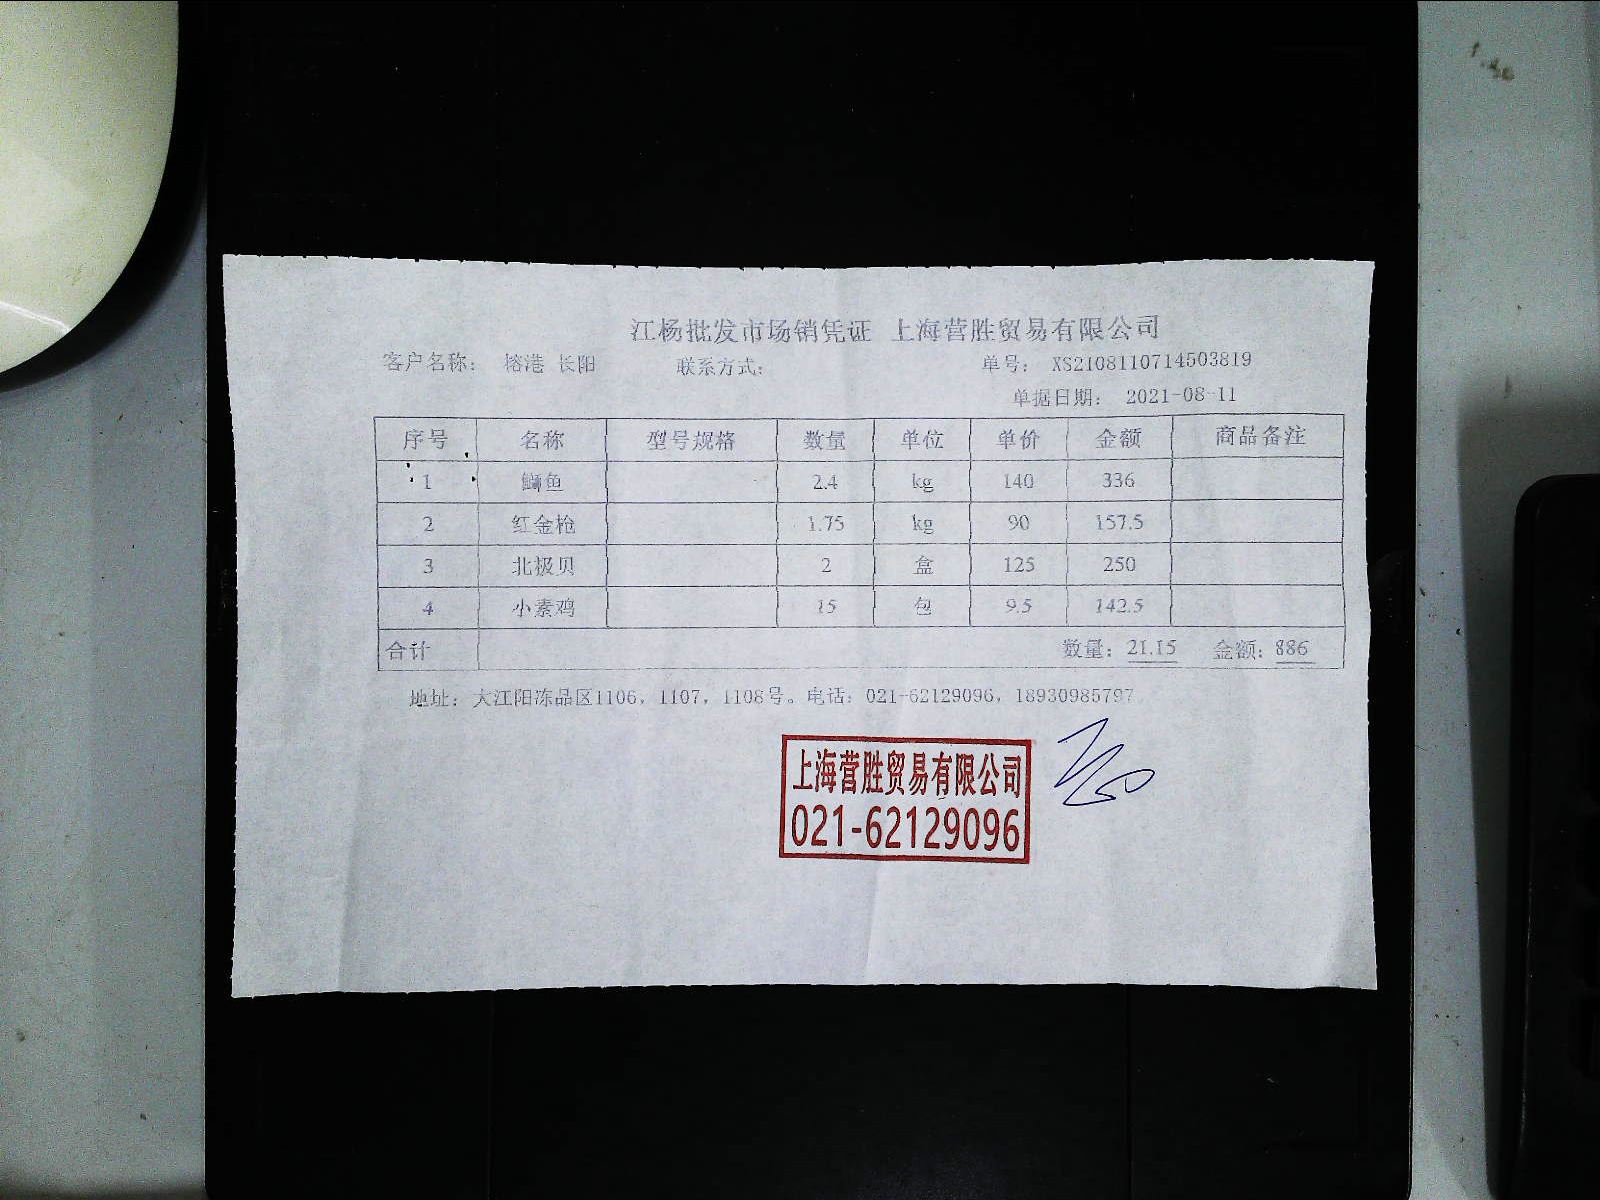 江杨批发市场销凭证 上海营胜贸易有限公司
客户名称： 榕港 长阳 联系方式： 单号： XS2108110714503819
单据日期： 2021-08-11
序号 名称 型号规格 数量 单位 单价 金额 商品备注
1 鰤鱼 2.4 kg 140 336
2 红金枪 1.75 kg 90 157.5
3 北极贝 2 盒 125 250
4 小素鸡 15 包 9.5 142.5
合计 数量：21.15 金额：886
地址：大江阳冻品区1106，1107，1108号。电话：021-62129096，18930985797
上海营胜贸易有限公司
021-62129096